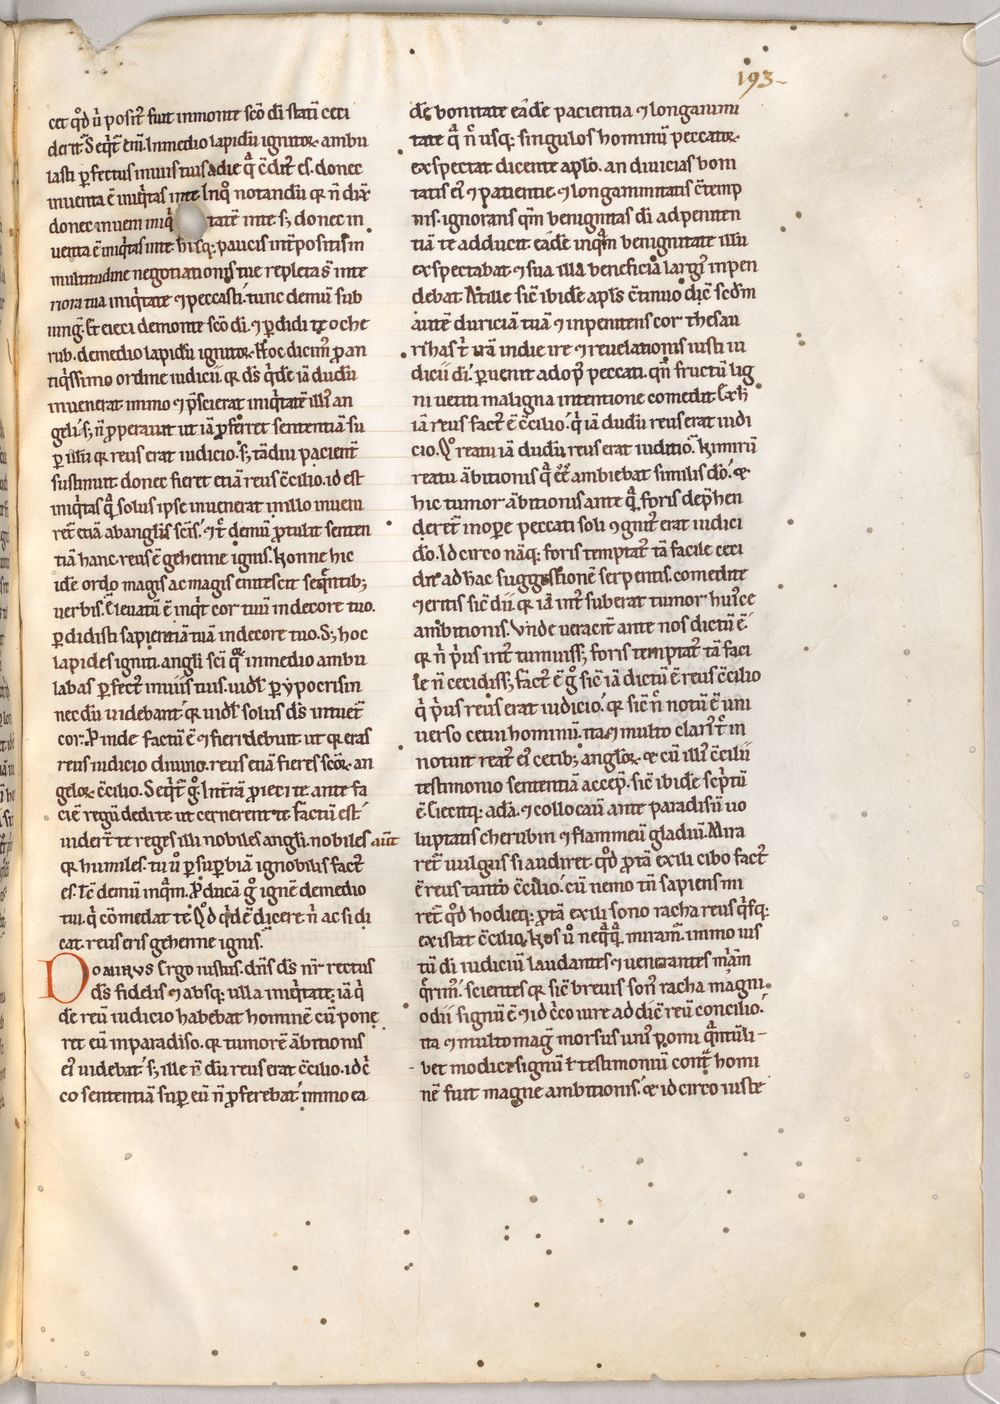 193
cet qd̊ ů posit᷒ fuit inmonte sc̄o dī statī ceci
derit᷒. Seqt̄᷒ enī. Inmedio lapidū ignitoꝝ ambu
lasti ꝑfectus inuiis tuis adie q̄ ↄdit᷒ es. donec
inuenta ē iniq̇tas inte. Inq̊ notandū qꝛ n̄ dix̄
donec inueni iniq̇tatē inte sꝫ donec in
uenta ē iniq̇tas inte. hisqꝫ paucis int̄positis. in
multitudine negotiationis tue repleta s̄ inte
riora tua iniq̇tate ⁊ peccasti. tunc demū sub
iung̅. Et eieci demonte sc̄o dī. ⁊ ꝑdidi te o che
rub. demedio lapidū ignitoꝝ. Hoc dicim᷒ ꝓ an
tiq̇ssimo ordine iudicii. qꝛ ds̄ q̇dē iā dudū
inuenerat immo ⁊ p̄scierat iniq̇tatē illi᷒ an
geli. sꝫ n̄ ꝓperauit ut iā ꝓferret sententiā su
ꝑ illū qꝛ reus erat iudicio. sꝫ tādiu pacient᷒
sustinuit donec fieret etiā reus ↄcilio. id est
iniq̇tas q̄ solus ipse inuenerat inillo inueni
ret᷒ etiā abanglis sc̄is. ⁊ t̄ demū ꝓtulit senten
tiā hanc. reus ē gehenne ignis. Nonne hic
idē ordo magis ac magis enitescit seq̄ntibꝫ
uerbis. Eleuatū ē inqt̄ cor tuū indecore tuo.
ꝑdidisti sapientiā tuā indecore tuo. Sꝫ hoc
lapides igniti. angli sc̄i qꝝ inmedio ambu
labas ꝑfect᷒ inuiis tuis. uidel ꝑ ypocrisin
necdū uidebant. qꝛ uidel solus ds̄ intuet᷒
cor. Proinde factū ē ⁊ fieri debuit ut qꝛ eras
reus iudicio diuino. reus etiā fieres sc̄oꝝ an
geloꝝ ↄcilio. Seqt̄᷒ g̊. Int̄rā ꝓieci te ante fa
ciē regū dedi te ut cernerent te. Factū est
uiderūt te reges illi nobiles angli. nobiles aūt
qꝛ humiles. tu ů ꝑ suꝑbiā ignobilis fact᷒
es. Tc̄ demū inq̄m. Producā g̊ ignē demedio
tui. q̇ comedat te. Qd̊ q̇dē ē dicere n̄ ac si di
cat. reus eris gehenne ignis.
DOMINUS Ergo iustus. dn̄s ds̄ nr̄ rectus
ds̄ fidelis ⁊ absqꝫ ulla iniq̇tate. iā q̇
dē reū iudicio habebat hominē cū pone
ret eū inparadiso. qꝛ tumorē ābitionis
ei᷒ uidebat. sꝫ ille n̄ dū reus erat ↄcilio. idc̄
co sententiā suꝑ eū n̄ ꝓferebat. immo ea
dē bonitate eādē pacientia ⁊ longanimi
tate q̄ n̄ usqꝫ singulos hominū peccatoꝝ
exspectat dicente aplo. an diuicias boni
tatis ei᷒ ⁊ patientie. ⁊ longanimitatis ↄtemp
nis. ignorans qm̄ benignitas dī adpeniten
tiā te adducit. eādē inq̄m benignitate illū
exspectabat ⁊ sua illa beneficia largi᷒ inpen
debat. At ille sic̄ ibidē apls ↄtinuo dic̄. scdm̄
autē duriciā tuā ⁊ inpenitens cor thesau
rihas t̄ irā indie ire ⁊ reuelationis iusti iu
dicii dī. ꝑuenit adop᷒ peccati. qn̄ fructū lig
ni uetiti maligna intentione comedit. Exh̄
iā reus fact᷒ ē ↄcilio. q̇ iā dudū reus erat iudi
cio. Qꝛ reatu iā dudū reus erat iuditio᷒. Nimirū
reatu ābitionis q̄ ee᷒ ambiebat similis dō. ⁊
hic tumor ābitionis ante q̄ foris dep̄hen
deret᷒ inope peccati soli ↄgnit᷒ erat iudici
dō. Idcirco nāqꝫ foris temptat᷒ tā facile ceci
dit᷒ adhāc suggestionē serpentis. comedite
⁊ eritis sic̄ dii. qꝛ iā int᷒ suberat tumor huice
ambitionis. Vnde uerac̄ ante nos dictū ē.
qꝛ n̄ p̄us int᷒ tumuissꝫ foris temptat᷒ tā faci
le n̄ cecidissꝫ. fact᷒ ē g̊ sic̄ iā dictū ē reus ↄcilio
q̇ p̄us reus erat iudicio. qꝛ sic̄ n̄c notū ē uni
uerso cetui hominū. ita ⁊ multo clari᷒ t̄c in
notuit reat᷒ ei᷒ cetibꝫ angloꝝ. ⁊ cū illi᷒ ↄcilii
testimonio sententiā accep̄. sic̄ ibidē sc̄ptū
ē. Eiecitqꝫ adā. ⁊ collocauit ante paradisū uo
luptatis cherubin ⁊ flammeū gladiū. Mira
ret᷒ uulgus si audiret. qd̊ ꝓ tā exili cibo fact᷒
ē reus tanto ↄcilio. cū nemo tn̄ sapiens mi
ret᷒ qd̊ hodieqꝫ ꝓ tā exili sono racha reus q̇sqꝫ
existat ↄcilio. Nos ů neqq̄ miram᷒. immo ius
tū dī iudiciū laudantes ⁊ uenerantes m̄am
q̄rim᷒. scientes qꝛ sic̄ breuis son᷒ racha magni
odii signū ē ⁊ idc̄co iure addic̄ reū concilio.
ita ⁊ multo mag᷒ morsus uni᷒ pomi q̄ntūli
bet modicꝫ signū ł testimoniū cont̄ homi
nē fuit magne ambitionis. ⁊ idcirco iuste